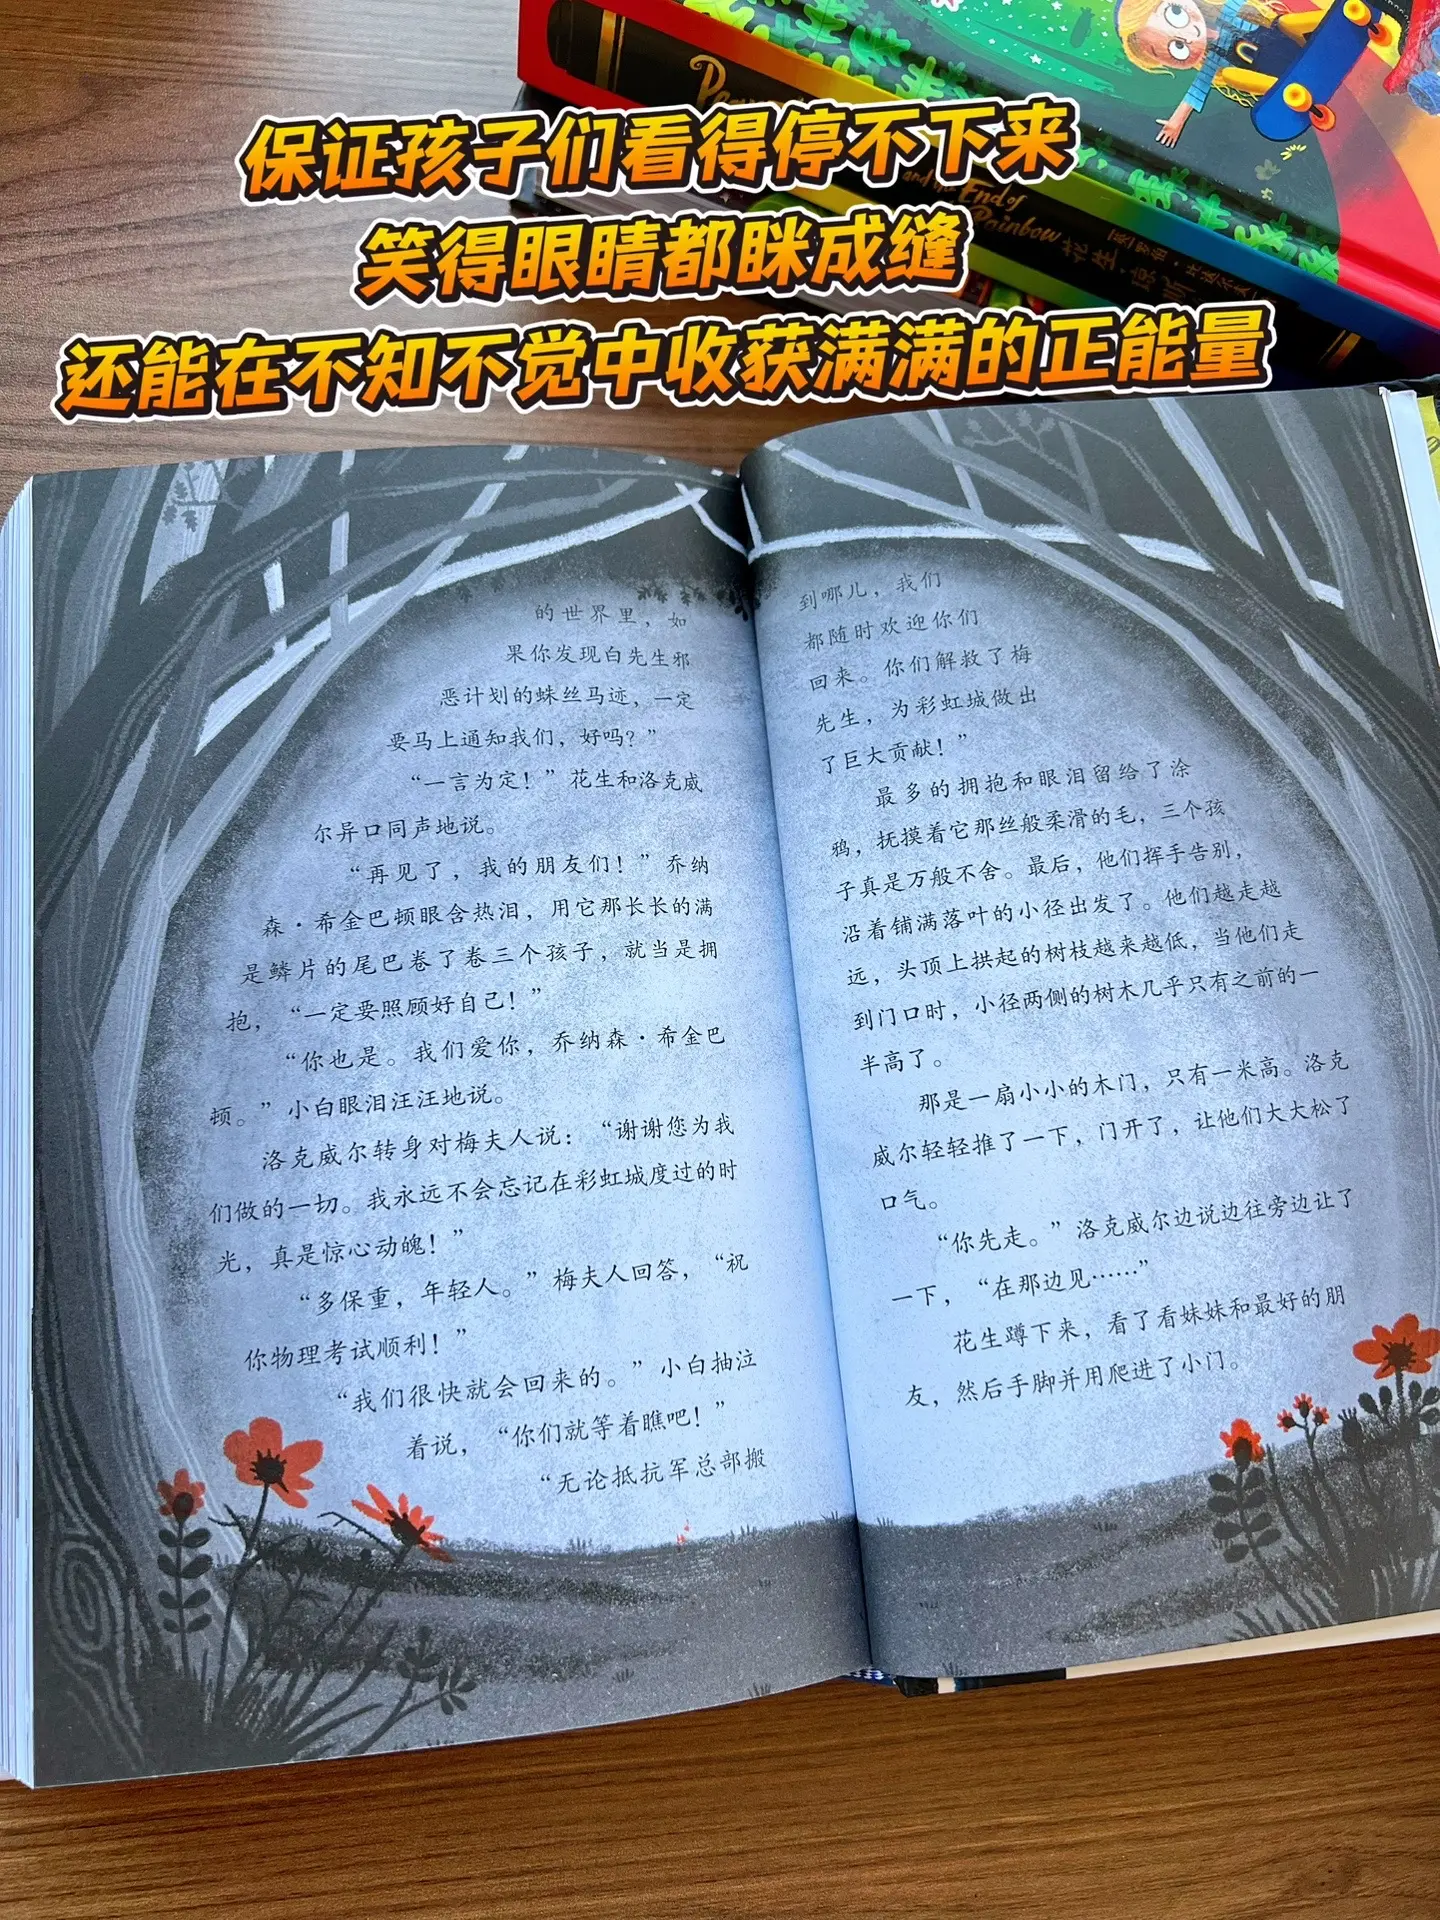 保证孩子们看得停不下来
笑得眼睛都眯成缝
还能在不知不觉中收获满满的正能量
and the End of
Rainbow
花生
的世界里，如
果你发现白先生邪
恶计划的蛛丝马迹，一定
要马上通知我们，好吗？”
“一言为定！”花生和洛克威
尔异口同声地说。
“再见了，我的朋友们！”乔纳
森·希金巴顿眼含热泪，用它那长长的满
是鳞片的尾巴卷了卷三个孩子，就当是拥
抱，“一定要照顾好自己！”
“你也是。我们爱你，乔纳森·希金巴
顿。”小白眼泪汪汪地说。
洛克威尔转身对梅夫人说：“谢谢您为我
们做的一切。我永远不会忘记在彩虹城度过的时
光，真是惊心动魄！”
“多保重，年轻人。”梅夫人回答，“祝
你物理考试顺利！”
“我们很快就会回来的。”小白抽泣
着说，“你们就等着瞧吧！”
“无论抵抗军总部搬
到哪儿，我们
都随时欢迎你们
回来。你们解救了梅
先生，为彩虹城做出
了巨大贡献！”
最多的拥抱和眼泪留给了涂
鸦，抚摸着它那丝般柔滑的毛，三个孩
子真是万般不舍。最后，他们挥手告别，
沿着铺满落叶的小径出发了。他们越走越
远，头顶上拱起的树枝越来越低，当他们走
到门口时，小径两侧的树木几乎只有之前的一
半高了。
那是一扇小小的木门，只有一米高。洛克
威尔轻轻推了一下，门开了，让他们大大松了
口气。
“你先走。”洛克威尔边说边往旁边让了
一下，“在那边见……”
花生蹲下来，看了看妹妹和最好的朋
友，然后手脚并用爬进了小门。